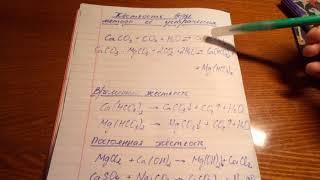 Жёсткость воды
методы её устранения
CaCO₃ + CO₂ + H₂O ⇌
CaCO₃ · MgCO₃ + 2CO₂ + 2H₂O ⇌ Ca(HCO₃)₂
+ Mg(HCO₃)₂
Временная жёсткость
Ca(HCO₃)₂ → CaCO₃↓ + CO₂↑ + H₂O
Mg(HCO₃)₂ → MgCO₃↓ + CO₂↑ + H₂O
Постоянная жёсткость
MgCl₂ + Ca(OH)₂ → Mg(OH)₂↓ + CaCl₂
CaSO₄ + Na₂CO₃ →